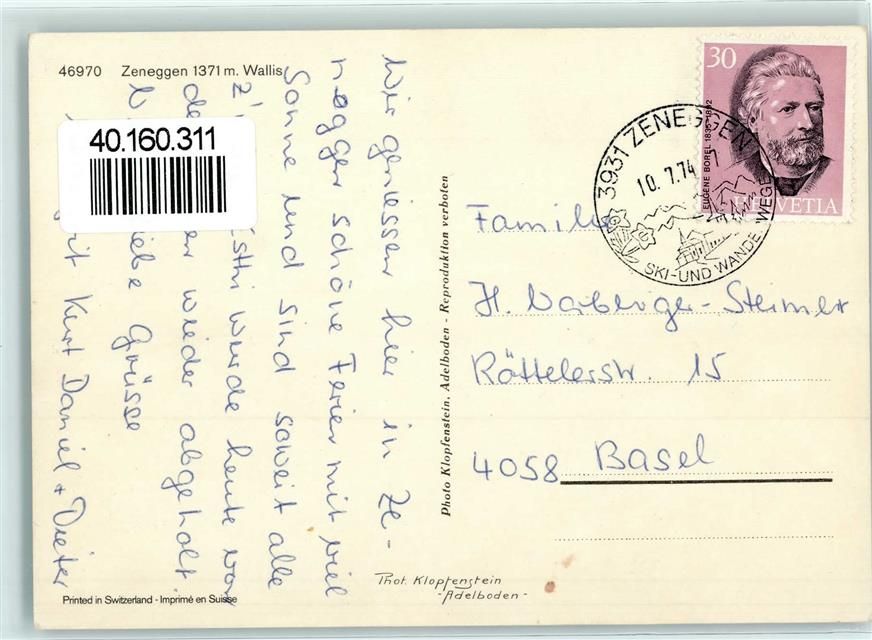 46970 Zeneggen 1371 m. Wallis
40.160.311
Wir geniessen hier in Ze-
neggen schöne Ferien mit viel
Sonne und sind soweit alle
z' wurde heute von
wieder abgeholt.
Liebe Grüsse
Kurt Daniel + Dieter
Printed in Switzerland - Imprimé en Suisse
Photo Klopfenstein, Adelboden - Reproduktion verboten
Phot. Klopfenstein
- Adelboden -
30
EUGÈNE BOREL 1835-1892
HELVETIA
3931 ZENEGGEN
10.7.74
SKI- UND WANDERWEGE
Familie
H. -Steiner
Röttelerstr. 15
4058 Basel